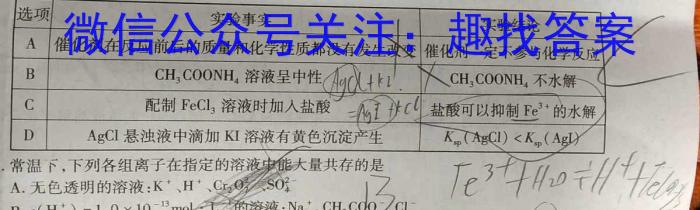 选项 实验事实 实验结论
微信公众号关注：趣找答案
A 催化剂在反应前后的质量和化学性质都没有发生改变 催化剂一定不参与化学反应
B CH₃COONH₄ 溶液呈中性 CH₃COONH₄ 不水解
AgCl+KI
=AgI+KCl
C 配制 FeCl₃ 溶液时加入盐酸 盐酸可以抑制 Fe³⁺ 的水解
D AgCl 悬浊液中滴加 KI 溶液有黄色沉淀产生 Kₛₚ(AgCl)<Kₛₚ(AgI)
.常温下,下列各组离子在指定的溶液中能大量共存的是
Fe³⁺+H₂O⇌H⁺+Fe
A. 无色透明的溶液:K⁺、H⁺、Cr₂O₇²⁻、SO₄²⁻
(H⁺)=1.0×10⁻¹³mol·L⁻¹的溶液:Na⁺、CH₃COO⁻、Cl⁻